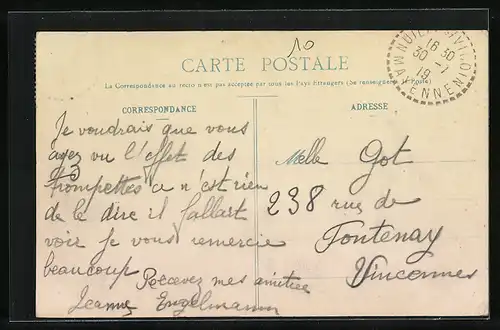 10
CARTE POSTALE
La Correspondance au recto n'est pas acceptée par tous les Pays Étrangers (Se renseigner à la Poste)
CORRESPONDANCE
Je voudrais que vous
ayez vu l'effet des
trompettes ça n'est rien
de le dire il fallait
voir Je vous remercie
beaucoup
Recevez mes amitiés
Jeanne Engelmann
ADRESSE
Melle Got
238 rue de
Fontenay
Vincennes
16 30
30 - 7
19
MAYENNE